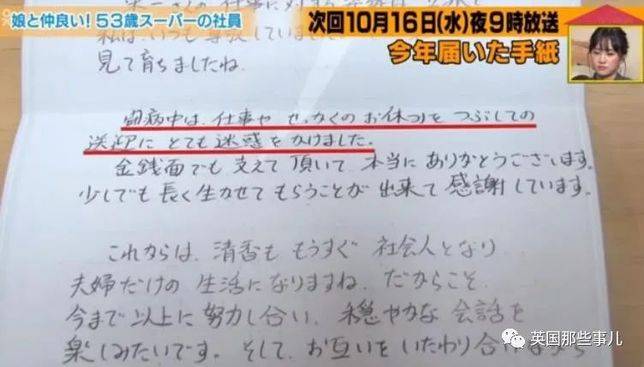 娘と仲良い！53歳スーパーの社員
次回10月16日(水)夜9時放送
今年届いた手紙
さんの仕事に対する
私はいつも
見て育ちましたね.
闘病中は、仕事や せっかくの お休みを つぶしての
送迎に とても迷惑を かけました.
金銭面でも 支えて 頂いて 本当に ありがとうございます.
少しでも 長く 生かせて もらうことが 出来て 感謝しています.
これからは、清香も もうすぐ 社会人となり
夫婦だけの 生活に なりますね. だからこそ、
今まで 以上に 努力し合い、穏やかな 会話を
楽しみたいです. そして、お互いを いたわり 合いながら
英国那些事儿